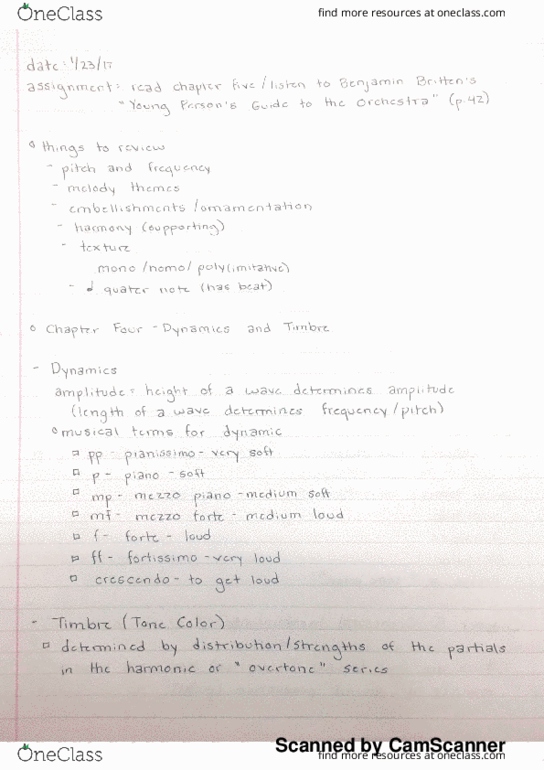 OneClass
find more resources at oneclass.com
date: 1/23/17
assignment: read chapter five/listen to Benjamin Britten's
"Young Person's Guide to the Orchestra" (p.42)
things to review
- pitch and frequency
- melody themes
- embellishments/ornamentation
- harmony (supporting)
- texture
mono/homo/poly(imitative)
- ♩ quater note (has beat)
Chapter Four - Dynamics and Timbre
- Dynamics
amplitude = height of a wave determines amplitude
(length of a wave determines frequency/pitch)
musical terms for dynamic
pp - pianissimo - very soft
p - piano - soft
mp - mezzo piano - medium soft
mf - mezzo forte - medium loud
f - forte - loud
ff - fortissimo - very loud
crescendo - to get loud
- Timbre (Tone Color)
determined by distribution/strengths of the partials
in the harmonic or "overtone" series
Scanned by CamScanner
OneClass
find more resources at oneclass.com